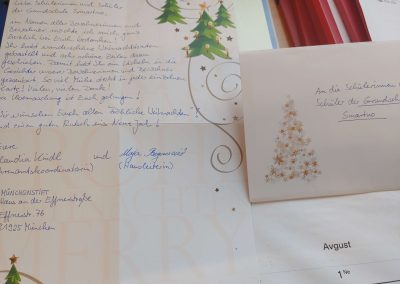 Liebe Schülerinnen und Schüler
der Grundschule Smartno,
im Namen aller Bewohnerinnen und
Bewohner möchte ich mich ganz
herzlich bei Euch bedanken.
Ihr habt wunderschöne Weihnachtskarten
gebastelt und sehr schöne Zeilen dazu
geschrieben. Damit habt Ihr ein Lächeln in die
Gesichter unserer Bewohnerinnen und Bewohner
gezaubert. So viel Mühe steckt in jeder einzelnen
Karte! Vielen, vielen Dank!
Die Überraschung ist Euch gelungen!
Wir wünschen Euch allen "Fröhliche Weihnachten"
und einen guten Rutsch ins Neue Jahr!
Eure
Claudia und
(Ehrenamtskoordinatorin) (Hausleiterin)
MÜNCHENSTIFT
Haus an der Effnerstraße
Effnerstr. 76
81925 München
An die Schülerinnen und
Schüler der Grundschule
Smartno
MERRY
Avgust
1 Ne